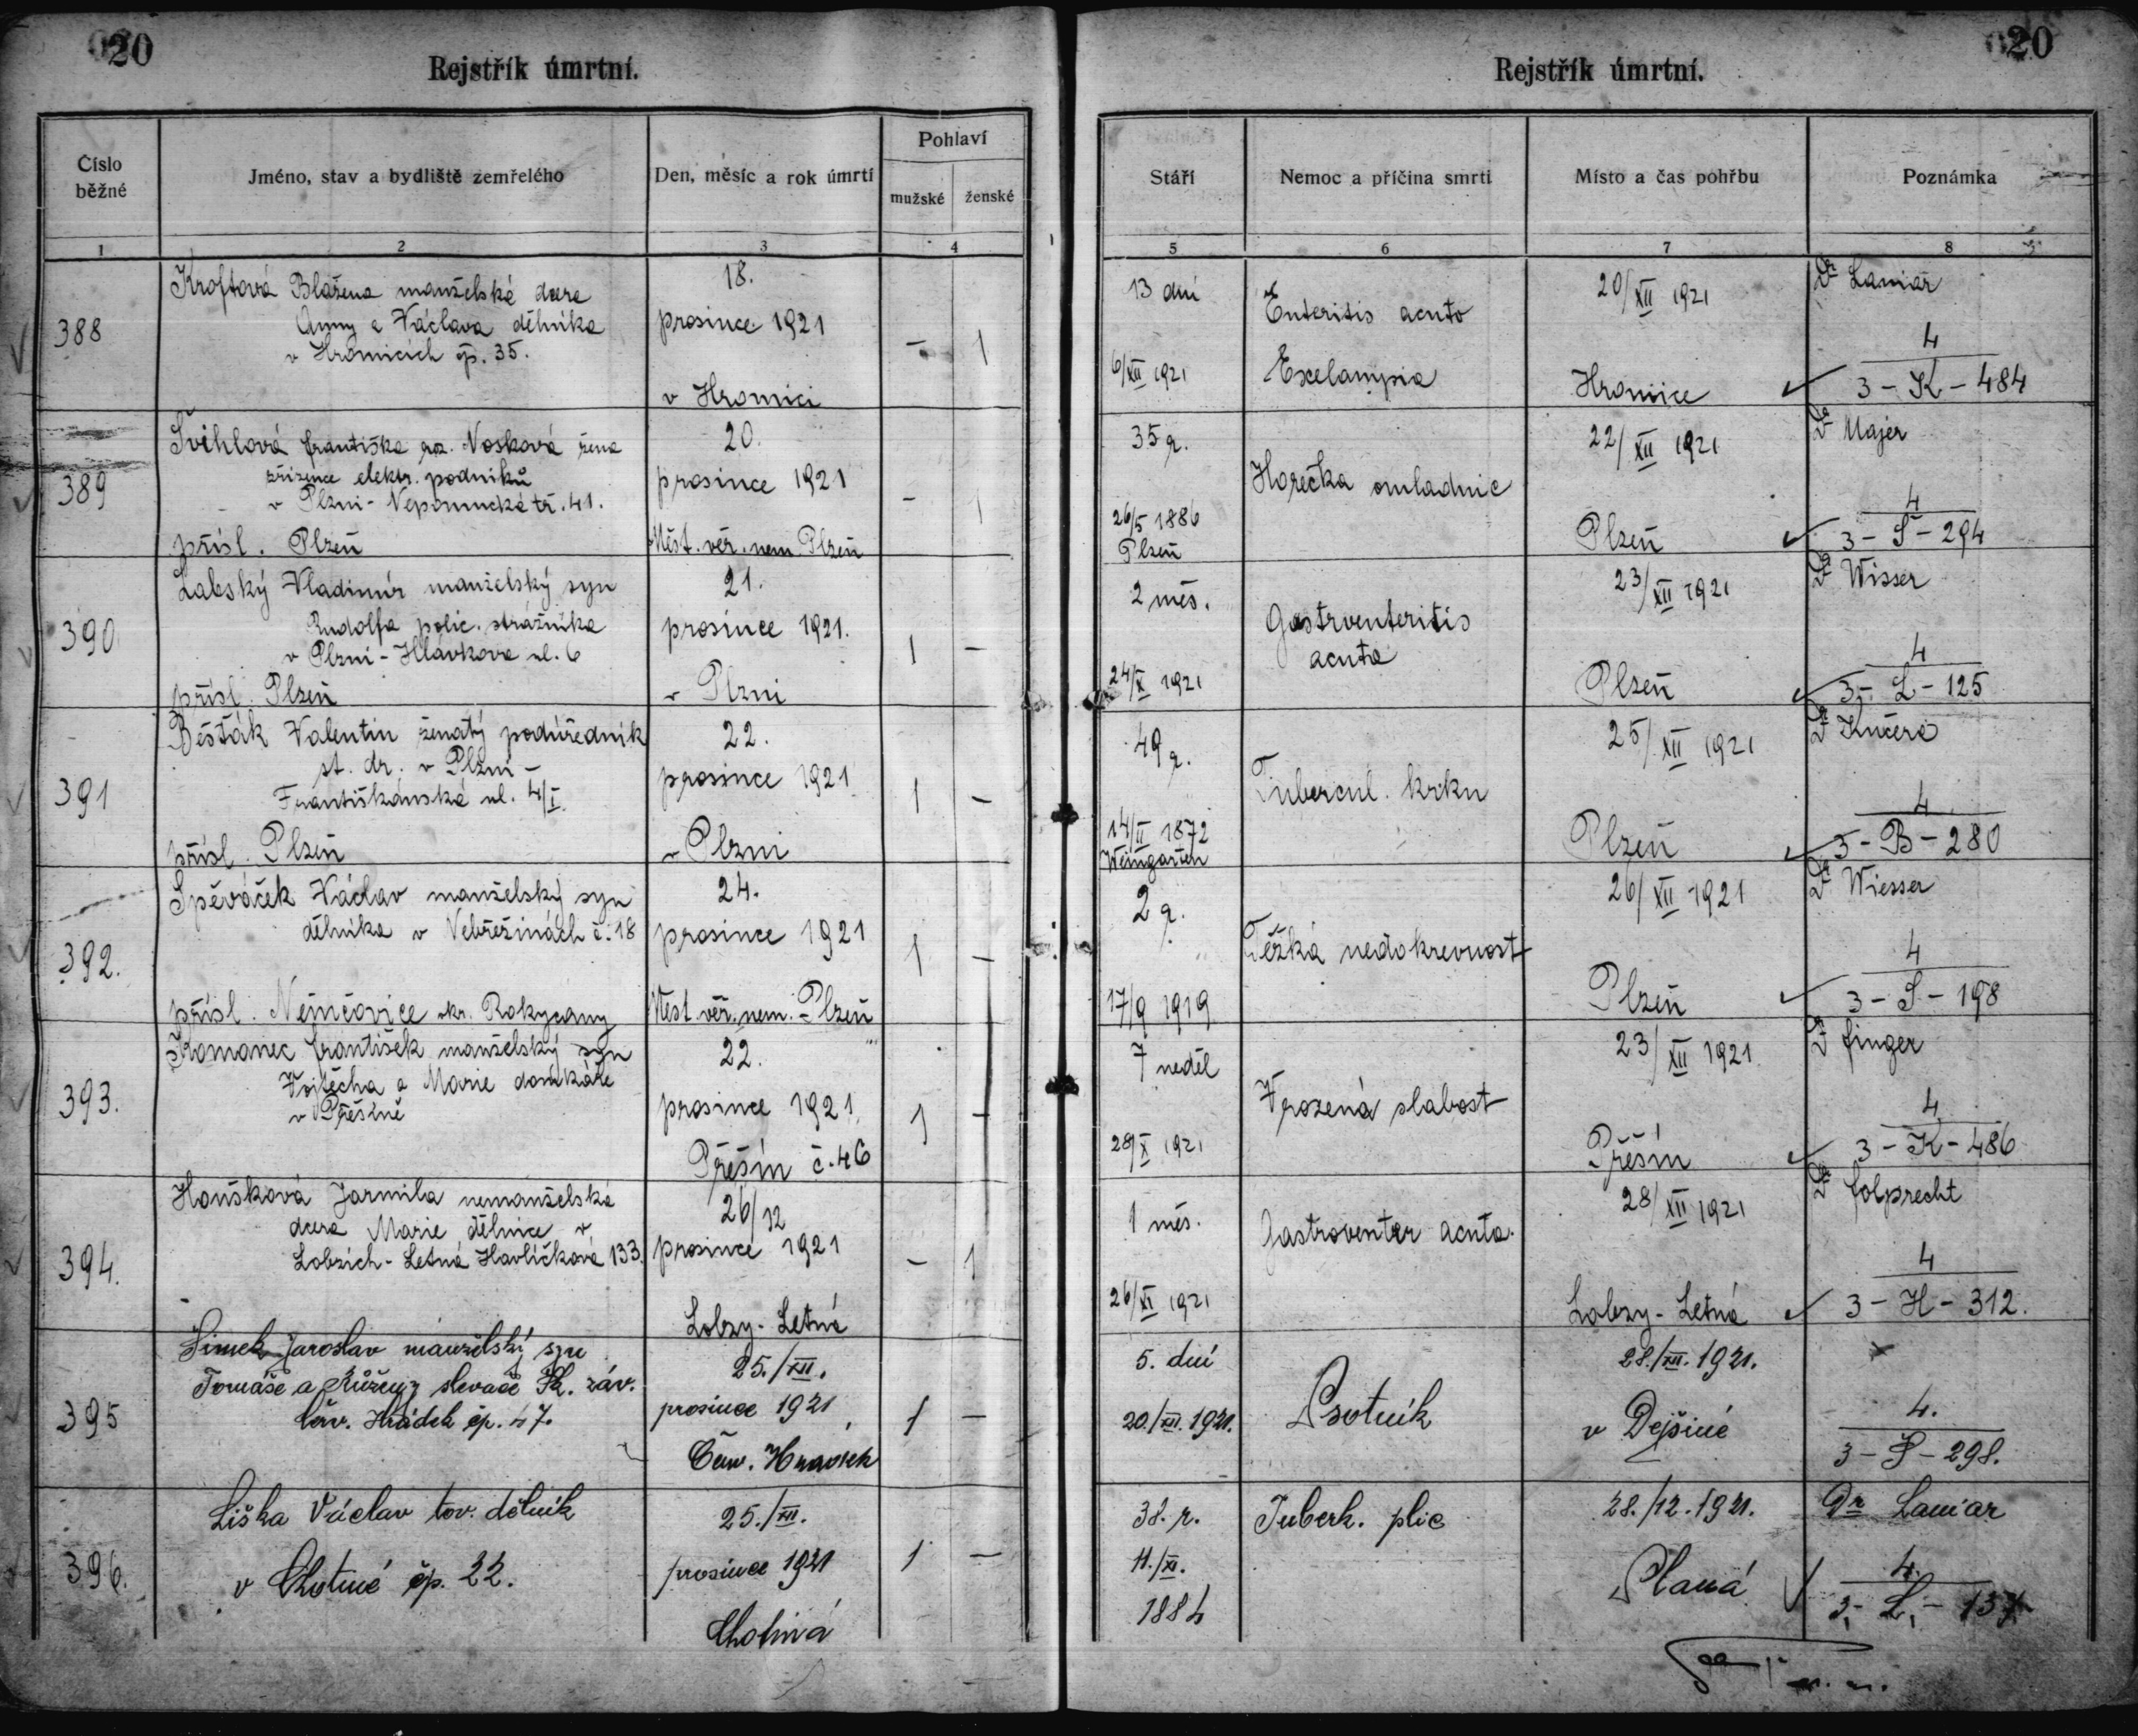 20
Rejstřík úmrtní.
Číslo běžné
Jméno, stav a bydliště zemřelého
Den, měsíc a rok úmrtí
Pohlaví
mužské
ženské
1
2
3
4
388
Kroftová Blažena manželská dcera
Anny a Václava dělníka
v Hromicích čp. 35.
18.
prosince 1921
v Hromici
- 1
389
Švihlová Františka roz. Nosková žena
zřízence elektr. podniků
v Plzni - Nepomucká tř. 41.
přísl. Plzeň
20.
prosince 1921
Měst. věř. nem. Plzeň
- 1
390
Labský Vladimír manželský syn
Rudolfa polic. strážníka
v Plzni - Hlávkova ul. 6
přísl. Plzeň
21.
prosince 1921.
v Plzni
1 -
391
Běšťák Valentin ženatý podúředník
st. dr. v Plzni -
Františkánská ul. 4/I.
přísl. Plzeň
22.
prosince 1921
v Plzni
1 -
392.
Spěváček Václav manželský syn
dělníka v Nebřežinách č. 18
přísl. Němčovice okr. Rokycany
24.
prosince 1921
Měst. věř. nem. - Plzeň
1 -
393.
Komanec František manželský syn
Vojtěcha a Marie domkáře
v Přešíně
22.
prosince 1921
Přešín č. 46
1 -
394.
Houšková Jarmila nemanželská
dcera Marie dělnice v
Lobzích - Letná Havlíčkova 133.
26/12
prosince 1921
Lobzy - Letná
- 1
395
Šimek Jaroslav manželský syn
Tomáše a Růženy slevače Šk. záv.
čp. 47.
25./XII.
prosince 1921
1 -
396.
Liška Václav tov. dělník
v Chotiné čp. 22.
25./XII.
prosince 1921
Chotiná
1 -
20
Rejstřík úmrtní.
Stáří
Nemoc a příčina smrti
Místo a čas pohřbu
Poznámka
5
6
7
8
13 dní
6/XII 1921
Enteritis acuta
Exclampsia
20/XII 1921
Hromice
Dr Laniar
4
3 - K - 484
35 r.
26/5 1886
Plzeň
Horečka omladnic
22/XII 1921
Plzeň
Dr Majer
4
3 - Š - 294
2 měs.
24/X 1921
Gastroenteritis
acuta
23/XII 1921
Plzeň
Dr Wisser
4
3 - L - 125
49 r.
14/II 1872
Weingarten
Tubercul. krku
25/XII 1921
Plzeň
Dr Kučera
4
3 - B - 280
2 r.
17/9 1919
Těžká nedokrevnost
26/XII 1921
Plzeň
Dr Wiesser
4
3 - S - 198
7 neděl
28/X 1921
Vrozená slabost
23/XII 1921
Přešín
Dr Finger
4
3 - K - 486
1 měs.
26/XI 1921
Gastroenter acuta.
28/XII 1921
Lobzy - Letná
Dr Folprecht
4
3 - H - 312.
5. dní
20./XII. 1921.
Psotník
28./XII. 1921.
v Dejšině
4.
3 - Š - 298.
38. r.
11./XI.
1884
Tuberk. plic
28./12. 1921.
Planá
Dr Laniar
4.
3. - L. - 137